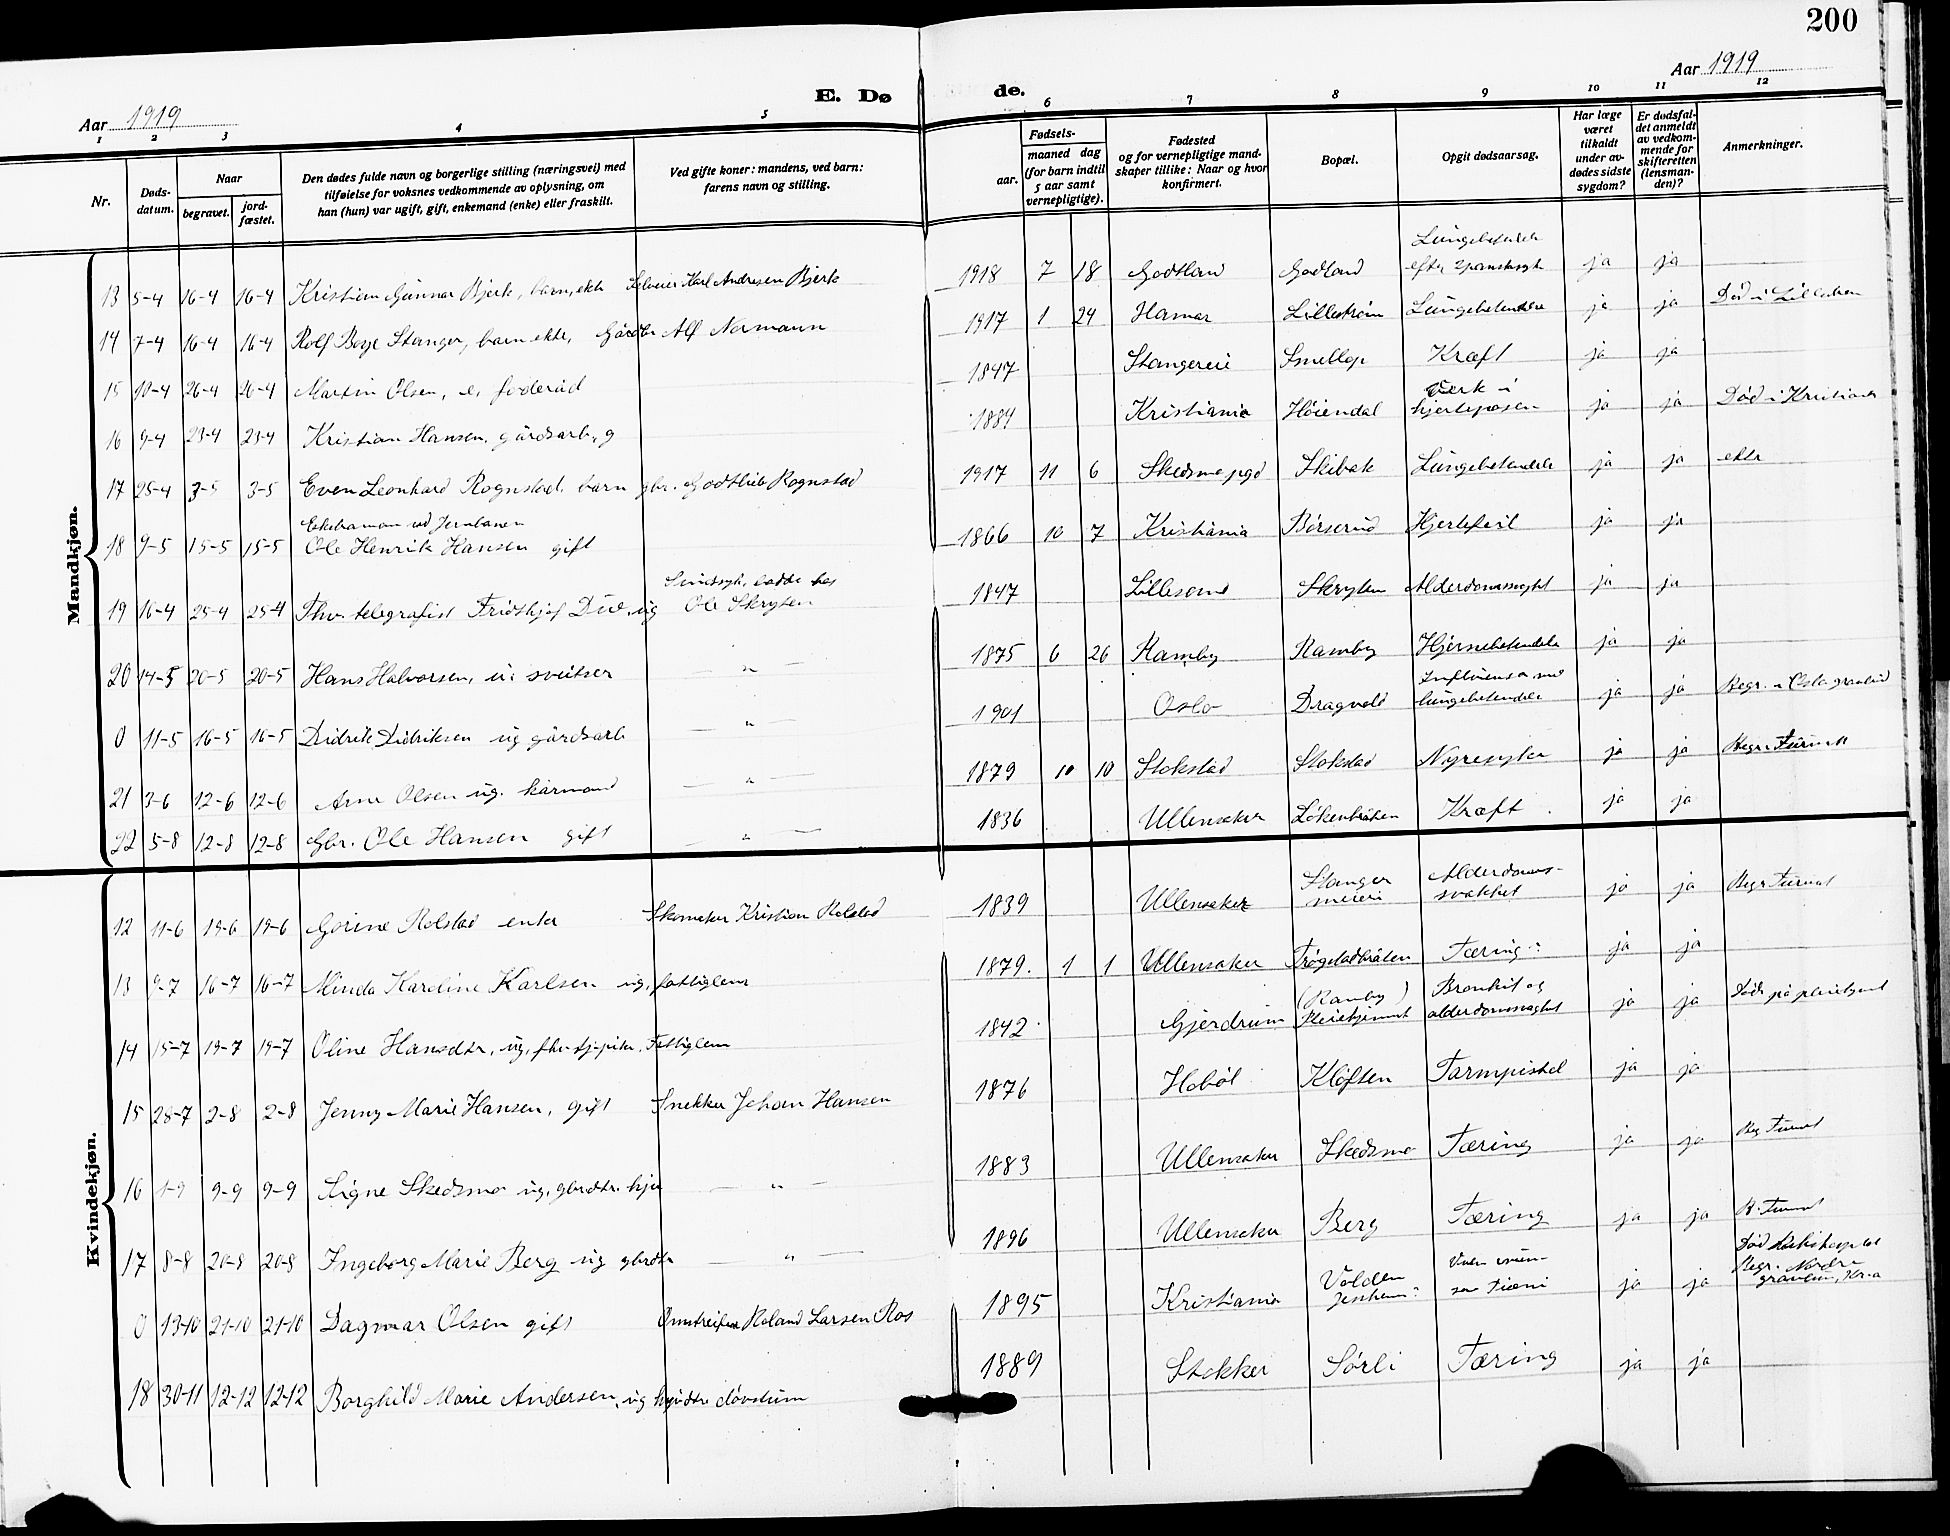 200
Aar 1919
Aar 1919
E. Dø
de.
1 2 3 4 5
6 7 8 9 10 11 12
Nr.
Døds-
datum.
Naar
begravet.
jord-
fæstet.
Den dødes fulde navn og borgerlige stilling (næringsvei) med
tilføielse for voksnes vedkommende av oplysning, om
han (hun) var ugift, gift, enkemand (enke) eller fraskilt.
Ved gifte koner: mandens, ved barn:
farens navn og stilling.
Fødsels-
aar.
maaned dag
(for barn indtil
5 aar samt
vernepligtige).
Fødested
og for vernepligtige mand-
skaper tillike: Naar og hvor
konfirmert.
Bopæl.
Opgit dødsaarsag.
Har læge
været
tilkaldt
under av-
dødes sidste
sygdom?
Er dødsfal-
det anmeldt
av vedkom-
mende for
skifteretten
(lensman-
den)?
Anmerkninger.
Mandkjøn.
13 5-4 16-4 16-4 Kristian Gunnar Bjerk, barn, ekte Karl Andresen Bjerk 1918 7 18 Godtland Godland Lungebetendelse efter spansksyk ja ja
14 7-4 16-4 16-4 Rolf Stanger, barn ekte, Alf Normann 1917 1 24 Hamar Lillestrøm Lungebetendelse ja ja Død i
15 10-4 26-4 26-4 Martin Olsen, e, foderåd 1847 Stangereie Kræft ja ja
16 9-4 23-4 23-4 Kristian Hansen, gårdsarb, g 1884 Kristiania Høiendal Værk i hjerteposen ja ja Død i Kristiania
17 25-4 3-5 3-5 Even Leonhard Rognstad, barn gbr. Godtlieb Rognstad 1917 11 6 Skedsmo pgd Skibak Lungebetendelse ja ja ekte
18 9-5 15-5 15-5 ved Jernbanen Ole Henrik Hansen gift 1866 10 7 Kristiania Børserud Hjertefeil ja ja
19 16-4 25-4 25-4 Fhv. telegrafist Fridthjof Due, ug Sindssyk, hos Ole Skryten 1847 Lillesand Skryten Alderdomssvaghet ja ja
20 14-5 20-5 20-5 Hans Halvorsen, u. sveitser — " — 1875 6 26 Ramby Ramby Hjernebetendelse ja ja
0 11-5 16-5 16-5 Didrik Didriksen ug gårdsarb — " — 1901 Oslo Dragvold Influensa med lungebetendelse ja ja Begr. i Oslo gravlund
21 3-6 12-6 12-6 Arne Olsen ug. kårmand — " — 1879 10 10 Stokstad Stokstad Nyresyke ja ja Begr. Furuset
22 5-8 12-8 12-8 Gbr. Ole Hansen gift — " — 1836 Ullensaker Løkenbråten Kræft ja ja
Kvindekjøn.
12 11-6 19-6 19-6 Gorine Rolstad enke Skomaker Kristian Rolstad 1839 Ullensaker Stanger meieri Alderdoms- svakhet ja ja Begr Furuset
13 9-7 16-7 16-7 Minda Karoline Karlsen ug, fattiglem 1879. 1 1 Ullensaker Trøgstadbråten Tæring ja ja
14 15-7 19-7 19-7 Oline Hansdtr, ug, fhv tj-pike, Fattiglem 1842 Gjerdrum (Ramby) Pleiehjemmet Bronkit og alderdomssvaghet ja ja Døde på pleiehjemmet
15 28-7 2-8 2-8 Jenny Marie Hansen, gift Snekker Johan Hansen 1876 Hobøl Kløften Tarmfistel ja ja
16 1-9 9-9 9-9 Signe Skedsmo ug. gbrdtr. — " — 1883 Ullensaker Skedsmo Tæring ja ja Beg Furuset
17 8-8 20-8 20-8 Ingeborg Marie Berg ug gbrdtr — " — 1896 Ullensaker Berg Tæring ja ja B. Furuset
0 13-10 21-10 21-10 Dagmar Olsen gift Omstreifer Roland Larsen Ros 1895 Kristiania Volden ja ja Død Begr. Nordre gravlund, Kr.a
18 30-11 12-12 12-12 Borghild Marie Andersen, ug døvstum 1889 Stokker Sørli Tæring ja ja